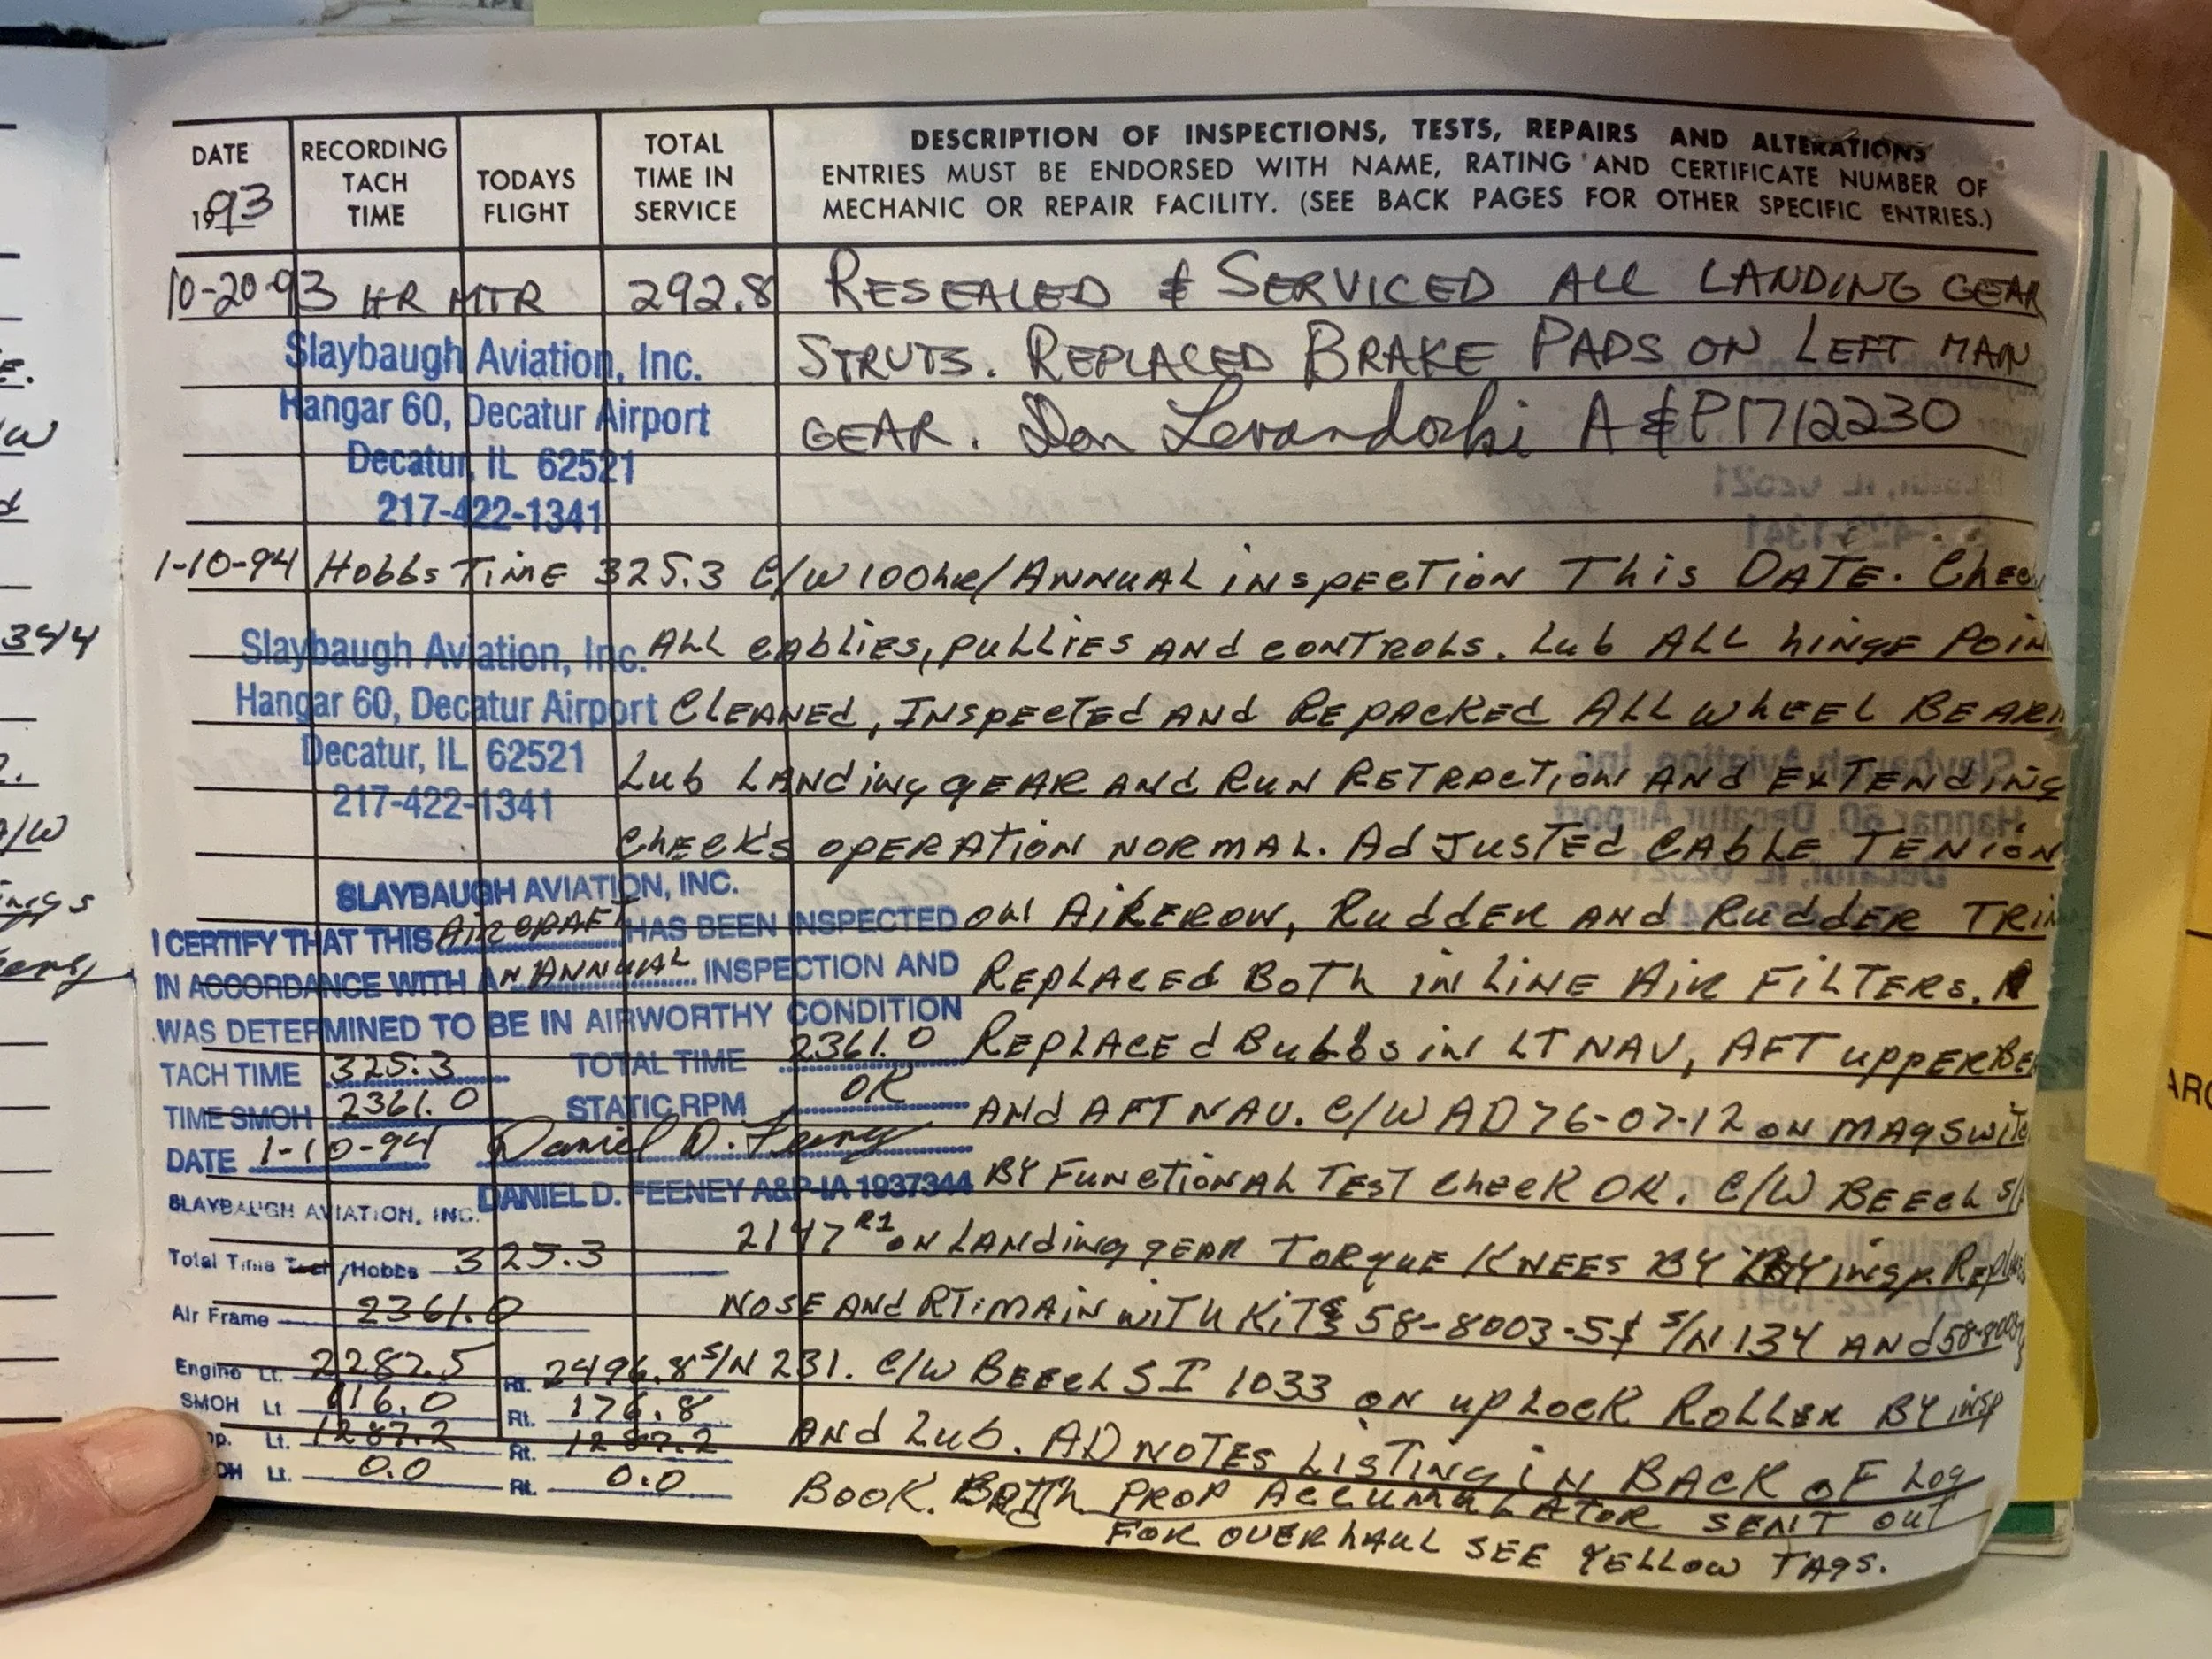 DATE
1993
RECORDING TACH TIME
TODAYS FLIGHT
TOTAL TIME IN SERVICE
DESCRIPTION OF INSPECTIONS, TESTS, REPAIRS AND ALTERATIONS
ENTRIES MUST BE ENDORSED WITH NAME, RATING AND CERTIFICATE NUMBER OF
MECHANIC OR REPAIR FACILITY. (SEE BACK PAGES FOR OTHER SPECIFIC ENTRIES.)
10-20-93 HR MTR 292.8 RESEALED & SERVICED ALL LANDING GEAR
STRUTS. REPLACED BRAKE PADS ON LEFT MAIN
GEAR. Don Levandoski A&P 1712230
Slaybaugh Aviation, Inc.
Hangar 60, Decatur Airport
Decatur, IL 62521
217-422-1341
1-10-94 Hobbs TiME 325.3 C/W 100hr/ANNUAL inspECTION This DATE. Check
ALL cAblies, puLLiES ANd cONTROLS. Lub ALL hiNgE POiN
CLEANEd, INspEcTEd ANd REpACKEd ALL whEEL BEARi
Lub LANdiNg gEAR ANd RuN RETRACTiON ANd EXTENdiNg
ChEcK's OPERATiON NORMAL. AdJusTEd CAbLE TENiON
ON AiREROW, RuddER ANd RuddER TRiM
REpLAcEd BoTh iN LiNE AiR FiLTERs.
REpLAcEd Bulbs iN LT NAV, AFT uppER BE
ANd AFT NAV. C/W AD 76-07-12 ON MAg SWiTc
BY FuNcTiONAL TEST ChEcK OK. C/W BEEcH S/I
2147 R1 ON LANdiNg gEAR TORquE KNEES BY iNsp. Replace
NOSE ANd RT. MAiN wiTh KiTs 58-8003-5 S/N 134 ANd 58-8003
S/N 231. C/W BEEcH SI 1033 ON up LocK ROLLER BY iNsp
ANd Lub. AD NOTES LiSTiNg iN BACK oF Log
BOOK. BOTh PROP AccuMuLATOR SENT OuT
FOR OVERhAuL SEE YELLOW TAgS.
Slaybaugh Aviation, Inc.
Hangar 60, Decatur Airport
Decatur, IL 62521
217-422-1341
SLAYBAUGH AVIATION, INC.
I CERTIFY THAT THIS AiRCRAFT HAS BEEN INSPECTED
IN ACCORDANCE WITH AN ANNuAL INSPECTION AND
WAS DETERMINED TO BE IN AIRWORTHY CONDITION
TACH TIME 325.3 TOTAL TIME 2361.0
TIME SMOH 2361.0 STATIC RPM OK
DATE 1-10-94 Daniel D. Feeney
DANIEL D. FEENEY A&P-IA 1937344
SLAYBAUGH AVIATION, INC.
Total Time Tach/Hobbs 325.3
Air Frame 2361.0
Engine Lt. 2282.5 Rt. 2496.8
SMOH Lt 116.0 Rt. 176.8
Lt. 1287.2 Rt. 1287.2
Lt. 0.0 Rt. 0.0